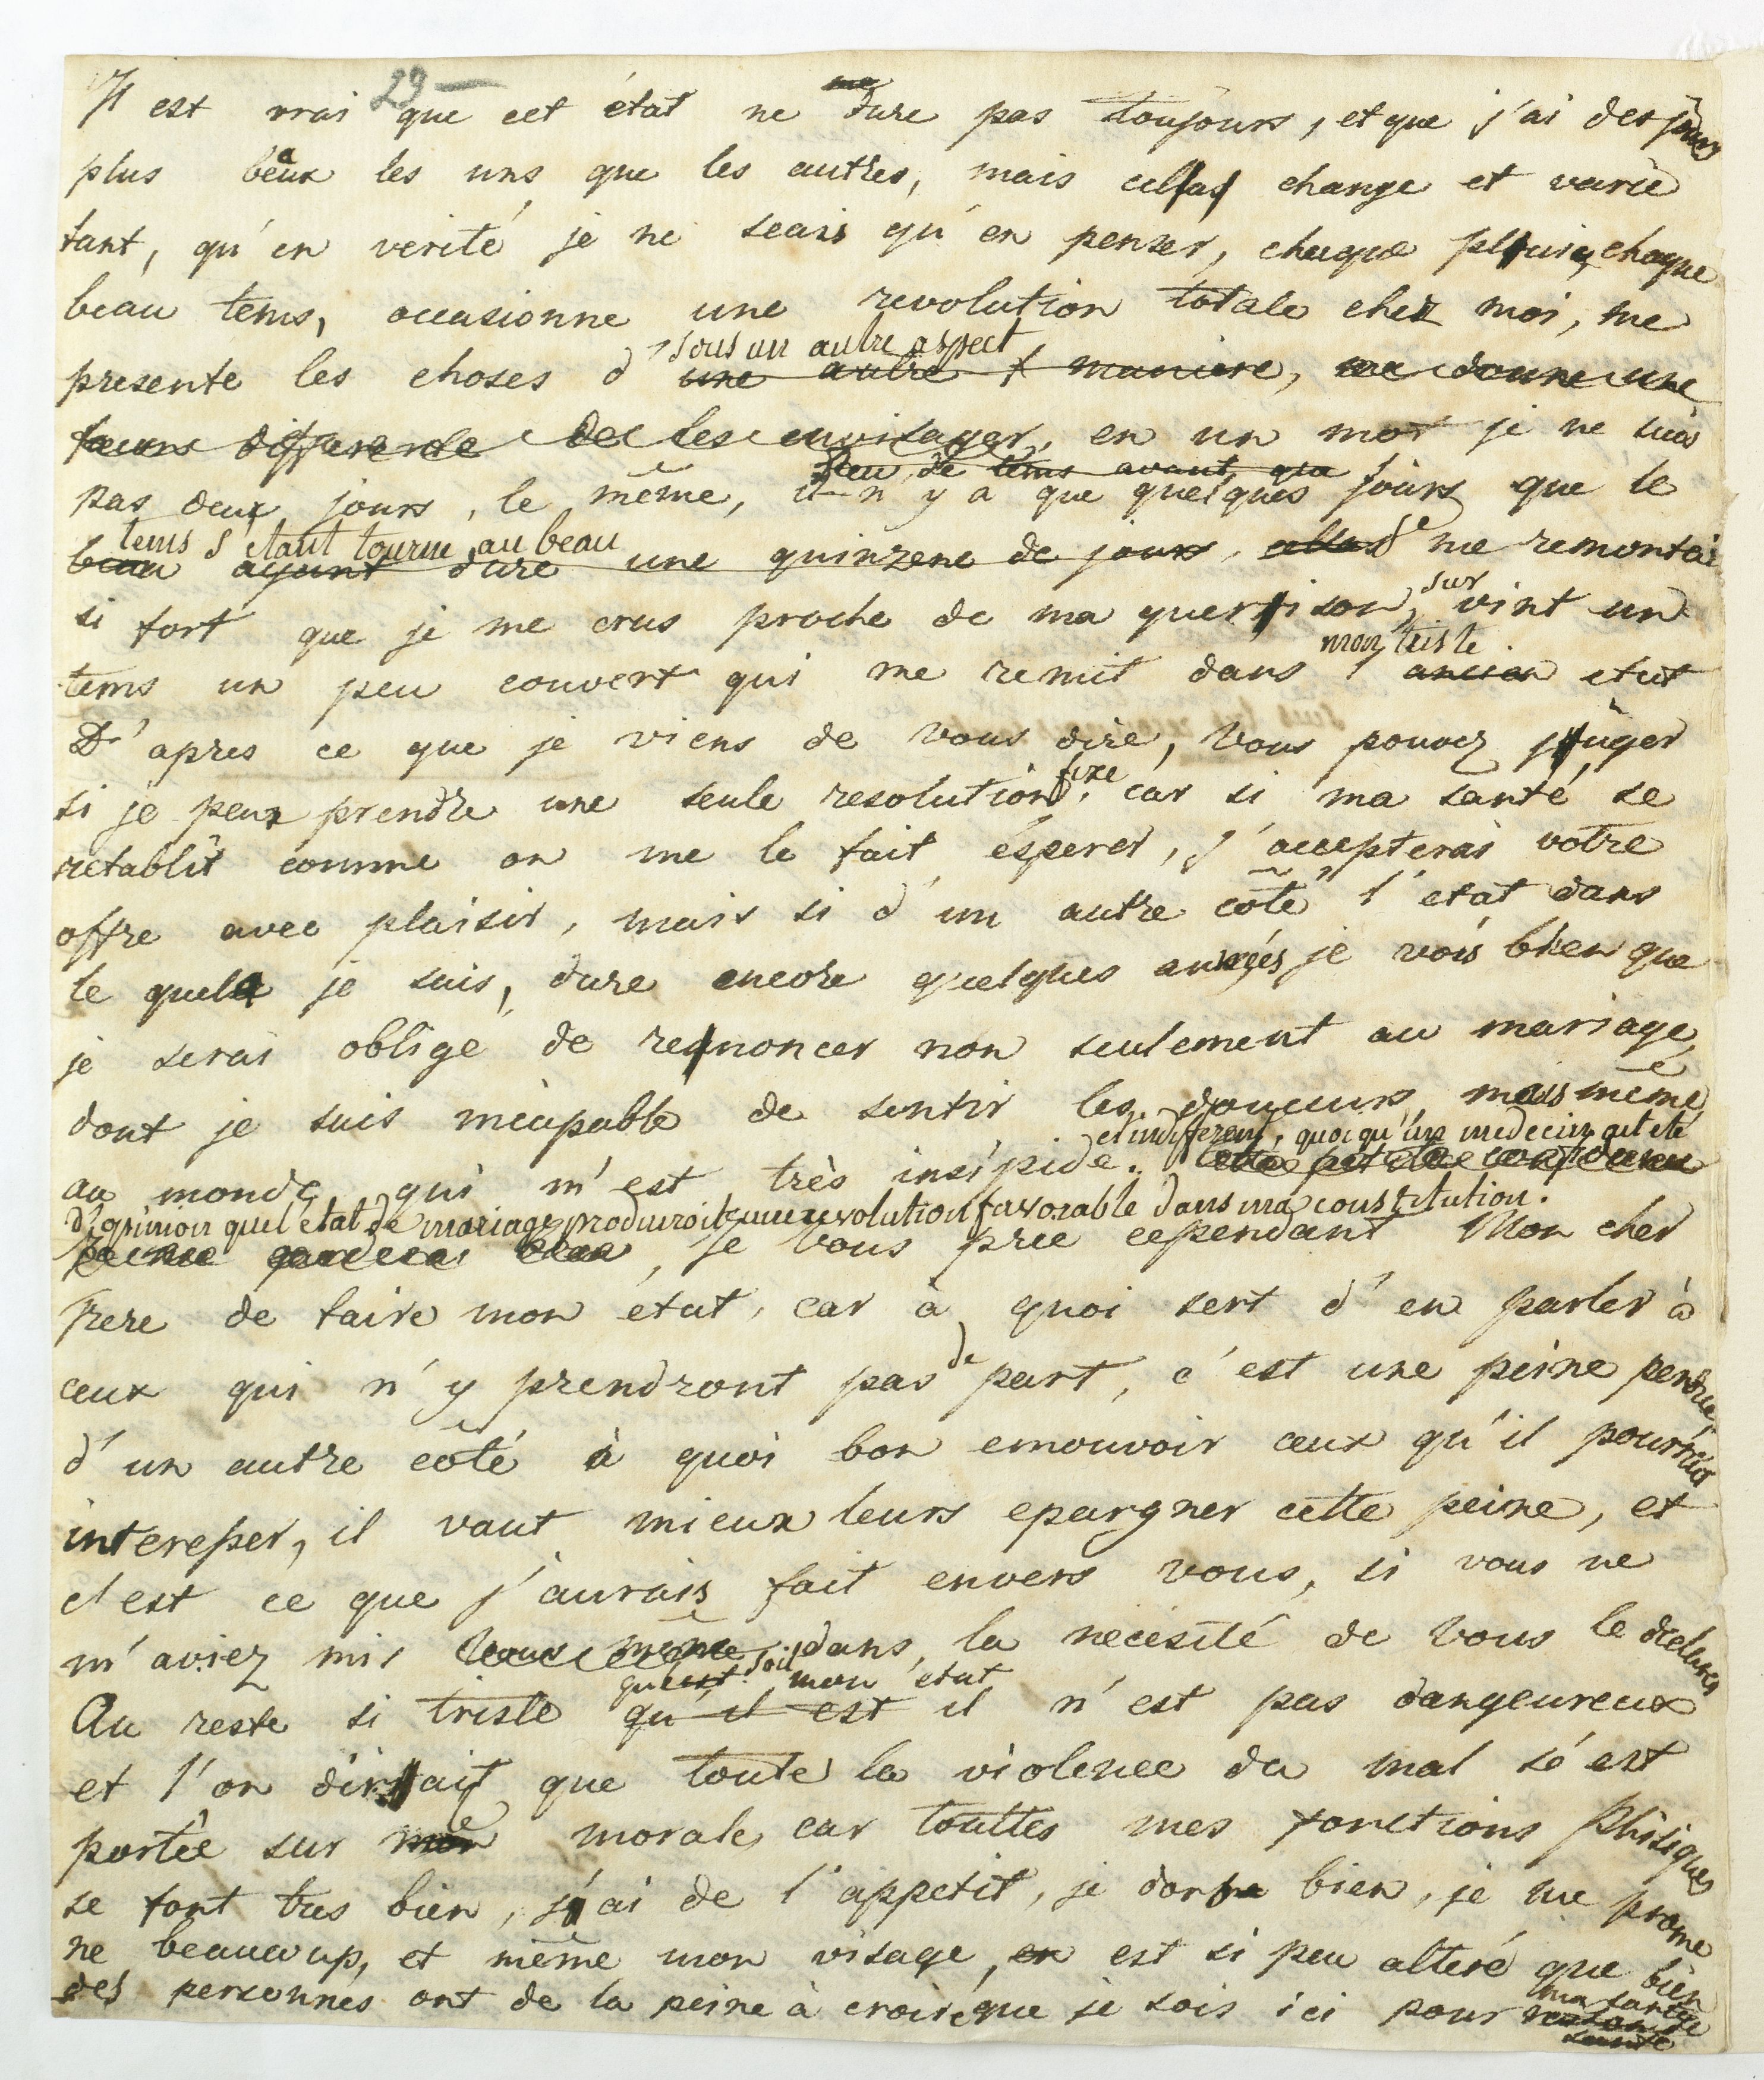 29
Il est vrai que cet état ne dure pas toujours, et que j'ai des jours
plus beaux les uns que les autres, mais cela change et varie
tant, qu'en verité je ne scais qu'en penser, chaque pluie, chaque
beau tems, occasionne une revolution totale chez moi, me
sous un autre aspect
presente les choses d'une autre maniere, me donne une
facons differente de les envisager, en un mot je ne suis
peu de tems avant que
pas deux jours, le même, il n'y a que quelques jours que le
tems s'etant tourne au beau
beau ayant dure une quinzene de jours, me remontai
si fort que je me crus proche de ma guerison, survint un
mon triste
tems un peu couvert qui me remit dans l'ancien etat
D'apres ce que je viens de vous dire, vous pouvez juger
fixe
si je peux prendre une seule resolution, car si ma santé se
retablit comme on me le fait ésperer, j'accepterai votre
offre avec plaisir, mais si d'un autre côté l'etat dans
le quel je suis, dure encore quelques années je vois bien que
je serai obligé de renoncer non seulement au mariage,
dont je suis incapable de sentir les douceurs mais même
et indifferent, quoi qu'un medecin ait eté
au monde qui m'est très insipide. Cette petite confidence
d'opinion que l'état de mariage produiroit une revolution favorable dans ma constitution.
je vous prie cependant Mon cher
frere de taire mon état, car à quoi sert d'en parler à
ceux qui n'y prendront pas de part, c'est une peine perdue,
d'un autre côté à quoi bon emouvoir ceux qu'il pourroit
interesser, il vaut mieux leurs epargner cette peine, et
c'est ce que j'aurais fait envers vous, si vous ne
m'aviez mis vous même dans la necésité de vous le declarer
que soit mon état
Au reste si triste qu'il est il n'est pas dangeureux
et l'on dirait que toute la violence du mal s'est
portée sur le mon morale, car touttes mes fonctions phisiques
se font tres bien, j'ai de l'appetit, je dors bien, je me prome
ne beaucoup, et même mon visage, en est si peu alteré que bien
des personnes ont de la peine à croire que je sois ici pour
ma santé
santé